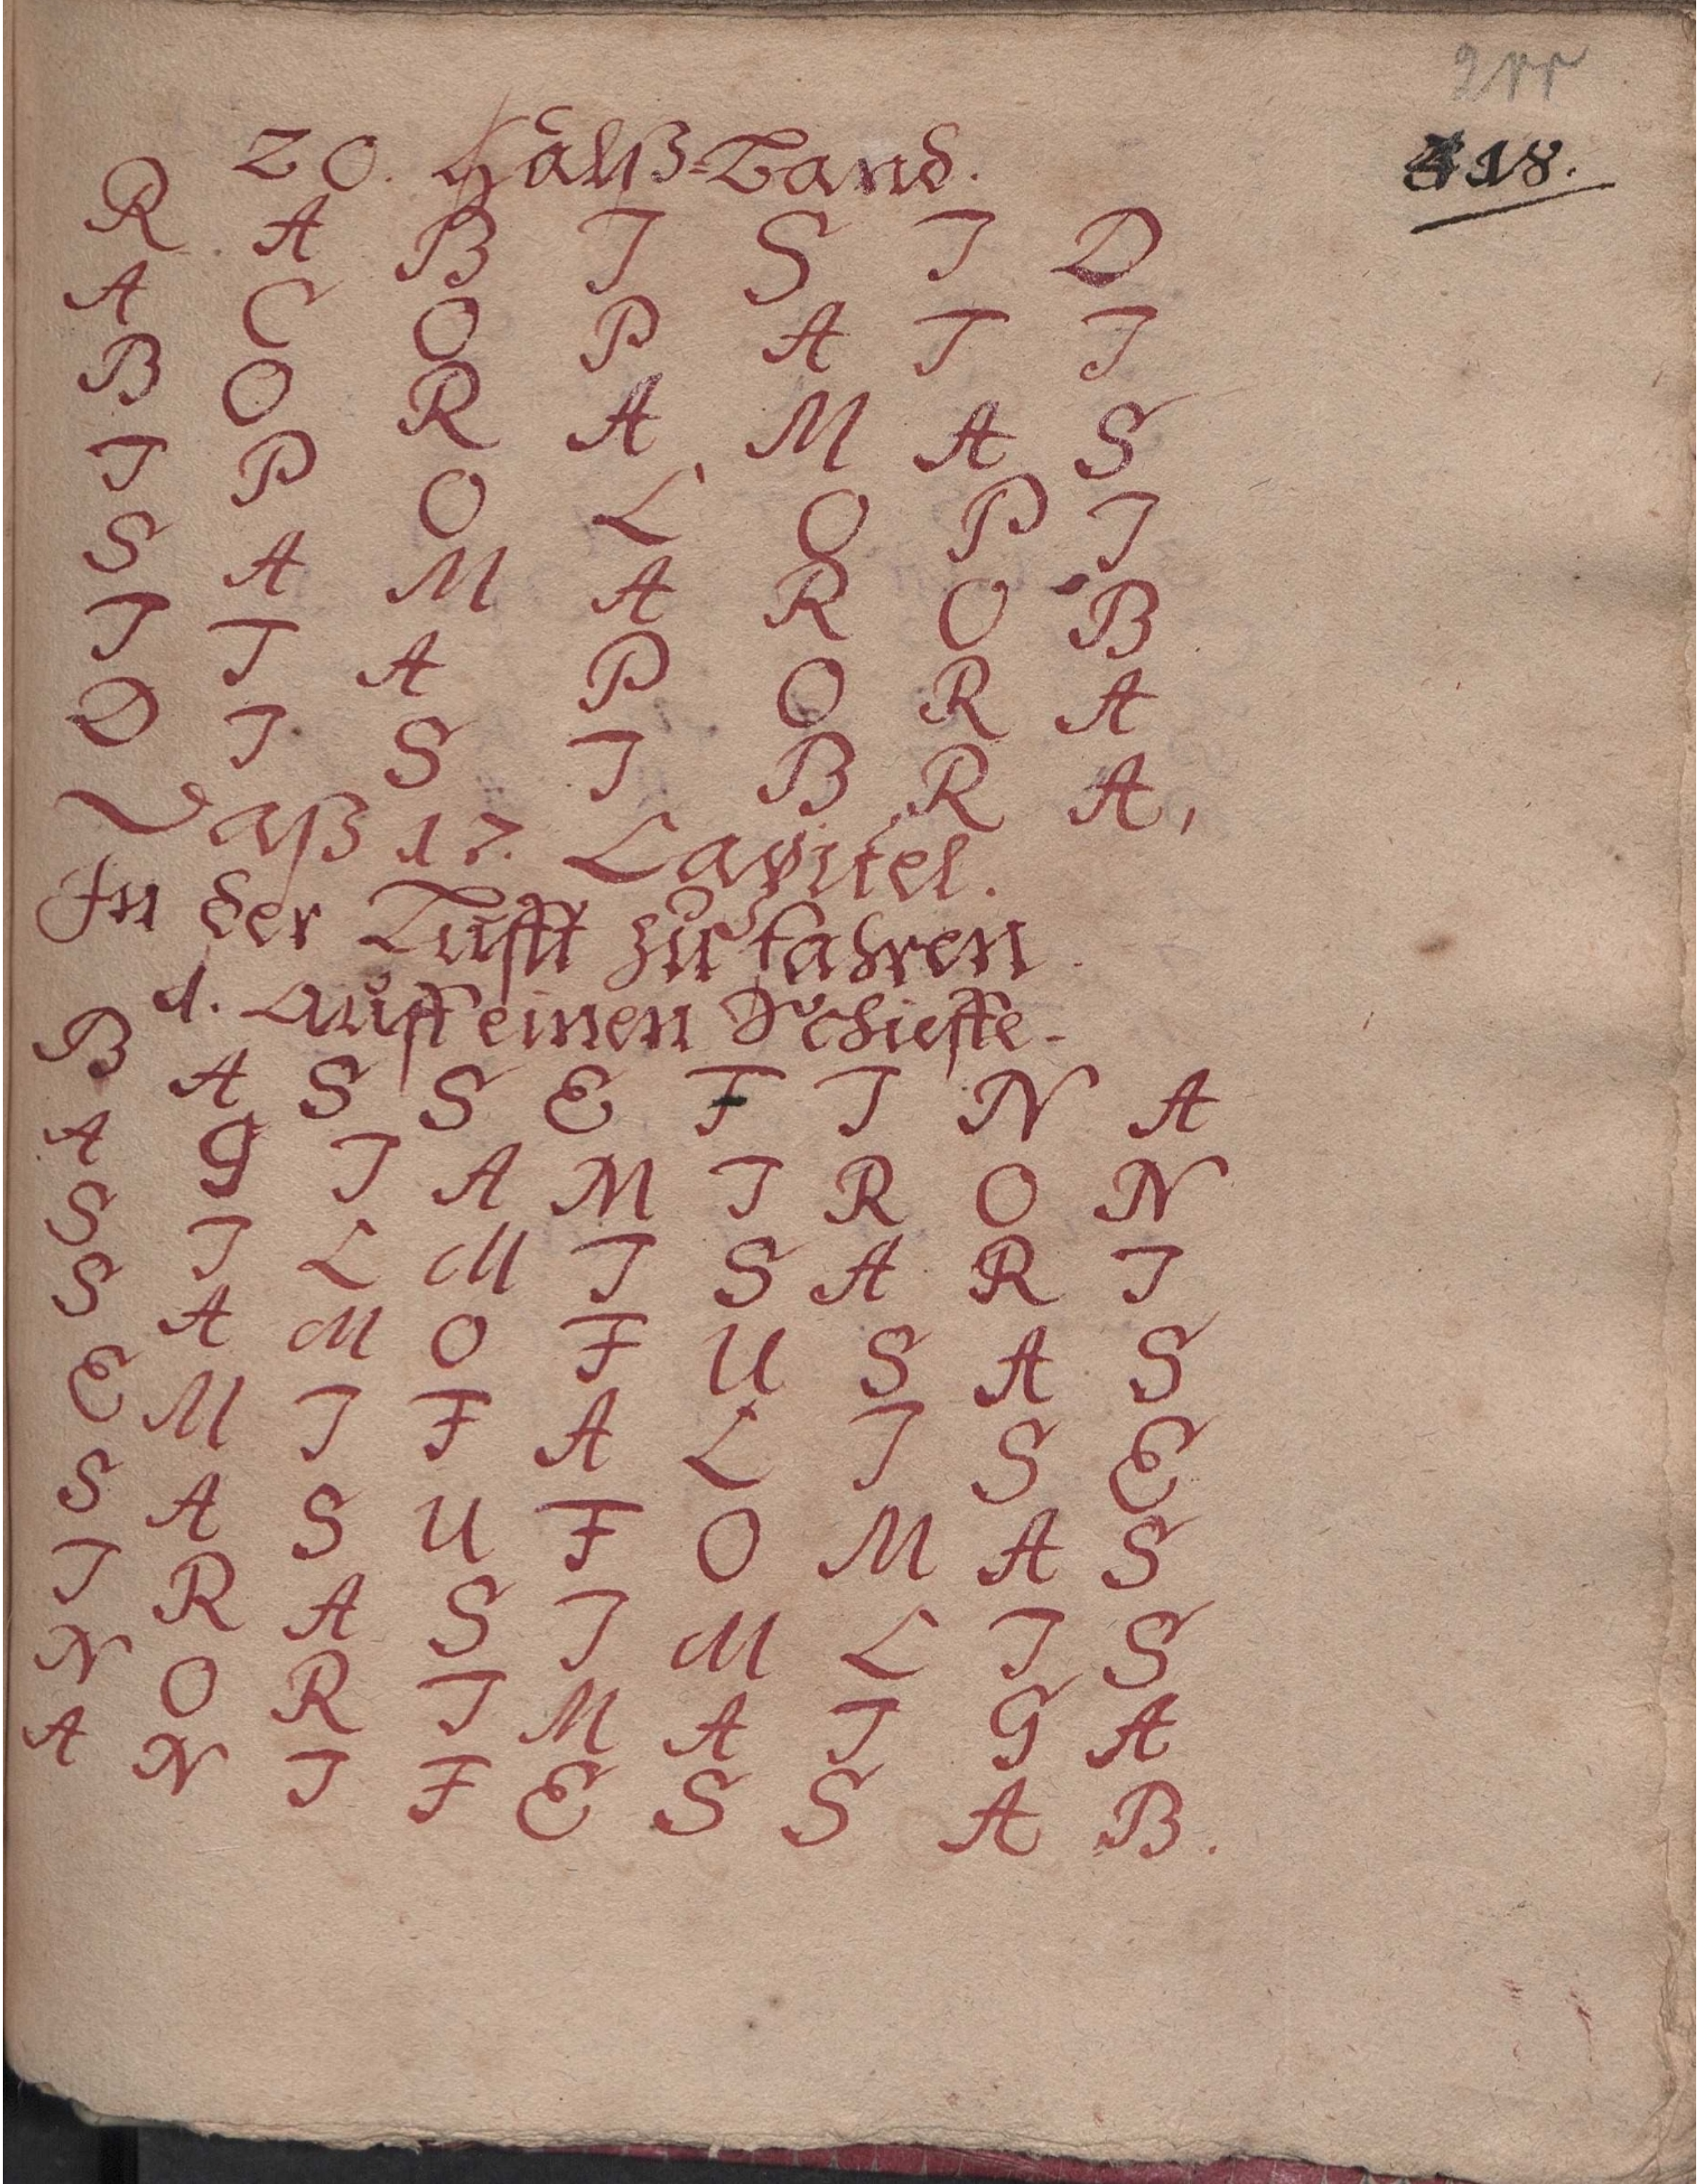 211
418.
20. Hauß-Land.
R A B I S I D
A C O P A T I
B O R A M A S
I P O L O P I
S A M A R O B
I T A P O R A
D I S I B R A,
Daß 17. Capitel.
In der Lufft zu fahren
1. Auff einen Schieffe.
B A S S E F I N A
A G I A M I R O N
S I L M I S A R I
S A M O F U S A S
E M I F A L I S E
S A S U F O M A S
I R A S I M L I S
N O R I M A I G A
A N I F E S S A B.